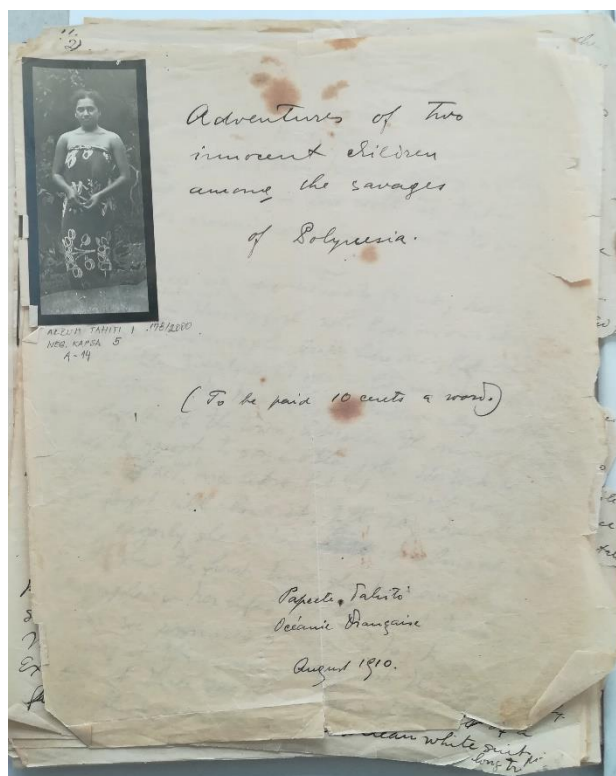 Adventures of two
innocent children
among the savages
of Polynesia.
ALBUM TAHITI 1 .173/2000
NEG. KAPSA 5
A-14
(To be paid 10 cents a word.)
Papeete, Tahiti
Océanie Française
August 1910.
clean white suit
long